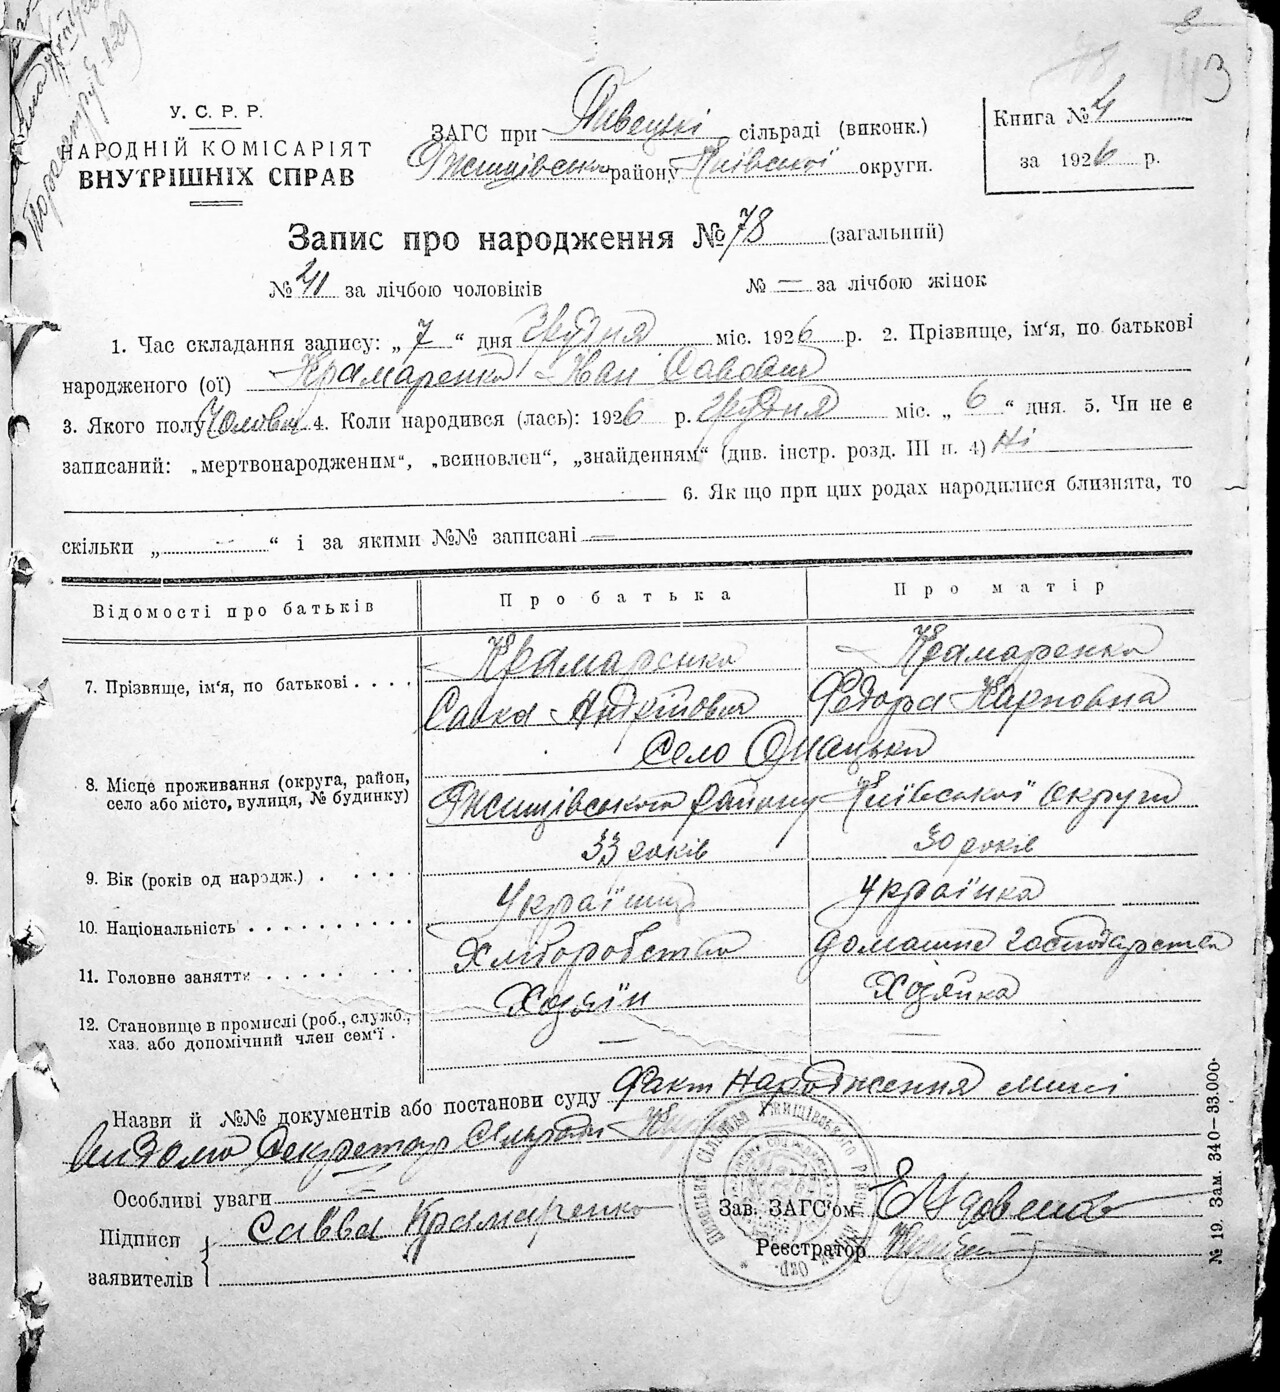 143
У. С. Р. Р.
НАРОДНІЙ КОМІСАРІЯТ
ВНУТРІШНІХ СПРАВ
ЗАГС при Пивецькі сільраді (виконк.)
Ржищівська району Київської округи.
Книга № 4
за 1926 р.
Запис про народження № 78 (загальний)
№ 41 за лічбою чоловіків № = за лічбою жінок
1. Час складання запису: „ 7 “ дня Грудня міс. 1926 р. 2. Прізвище, ім‘я, по батькові
народженого (ої) Крамаренко Іван Савович
3. Якого полу Чолов 4. Коли народився (лась): 1926 р. Грудня міс. „ 6 “ дня. 5. Чи не є
записаний: „мертвонародженим“, „всиновлен“, „знайденням“ (див. інстр. розд. III п. 4) Ні
6. Як що при цих родах народилися близнята, то
скільки „ — “ і за якими №№ записані —
Відомості про батьків Про батька Про матір
7. Прізвище, ім‘я, по батькові . . . . Крамаренко Крамаренко
Савка Андрійович Федора Карповна
8. Місце проживання (округа, район, село або місто, вулиця, № будинку) Село
Ржищівського району Київської округи
9. Вік (років од народж.) . . . . . 33 років 30 років
10. Національність . . . . . . . . . . Українц Українка
11. Головне заняття . . . . . . . . Хліборобство домашне господарство
12. Становище в промислі (роб., служб., хаз. або допомічний член сем‘ї . Хозяїн Хозяйка
Назви й №№ документів або постанови суду Факт Народження мині
видомо Секретар сільради
Особливі уваги
Підписи заявителів Савва Крамаренко
Зав. ЗАГС‘ом
Реєстратор
№ 19. Зам. 340—33.000